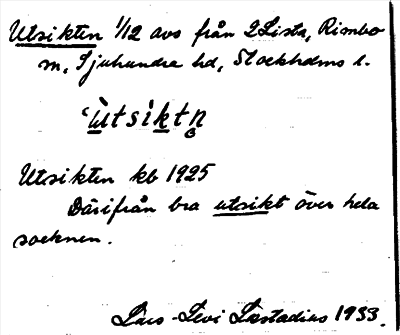 Utsikten 1/12 avs från 2 Lista, Rimbo
sn, Sjuhundra hd, Stockholms l.
`ùtsìktn̥
Utsikten kb 1925
Därifrån bra utsikt över hela
socknen.
Lars-Levi Læstadius 1933.